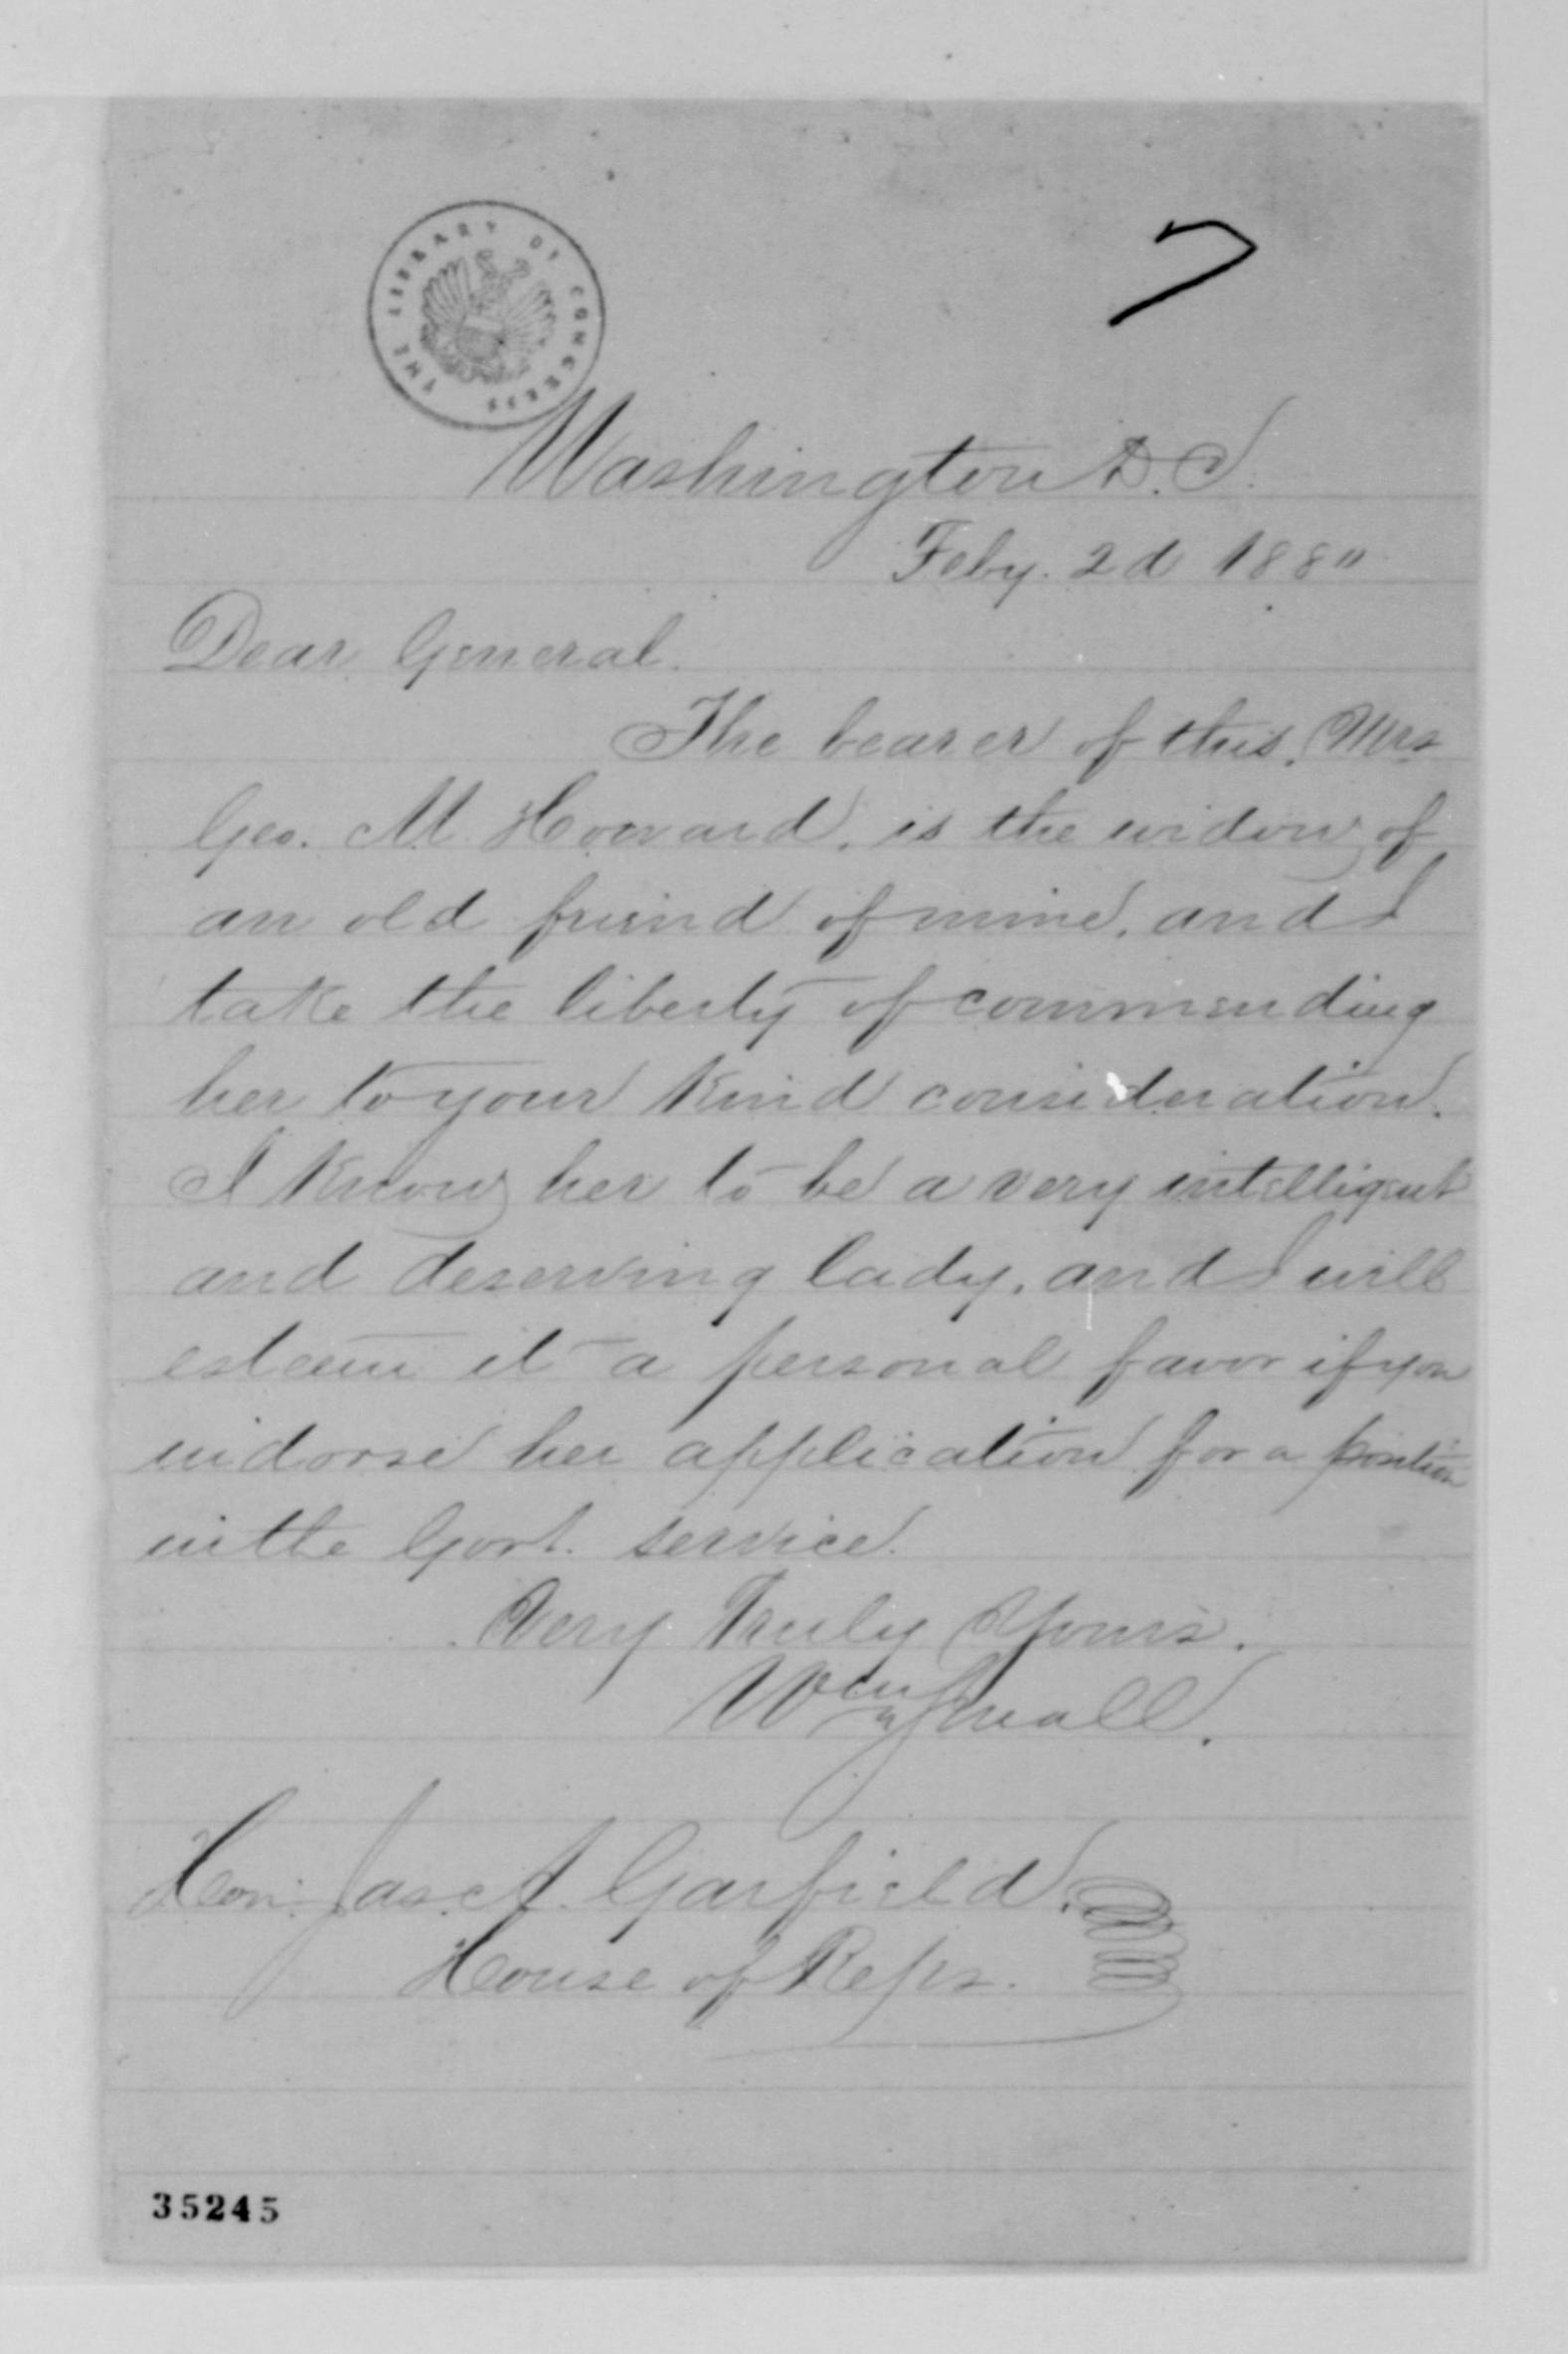 THE LIBRARY OF CONGRESS
7
Washington D.C.
Feby. 2d 1880
Dear General.
The bearer of this, Mrs
Geo. M. Howard, is the widow of
an old friend of mine, and I
take the liberty of commending
her to your kind consideration.
I know her to be a very intelligent
and deserving lady, and I will
esteem it a personal favor if you
indorse her application for a position
in the Govt. service.
Very Truly Yours.
Wm Small.
Hon. Jas. A. Garfield.
House of Reps.
35245